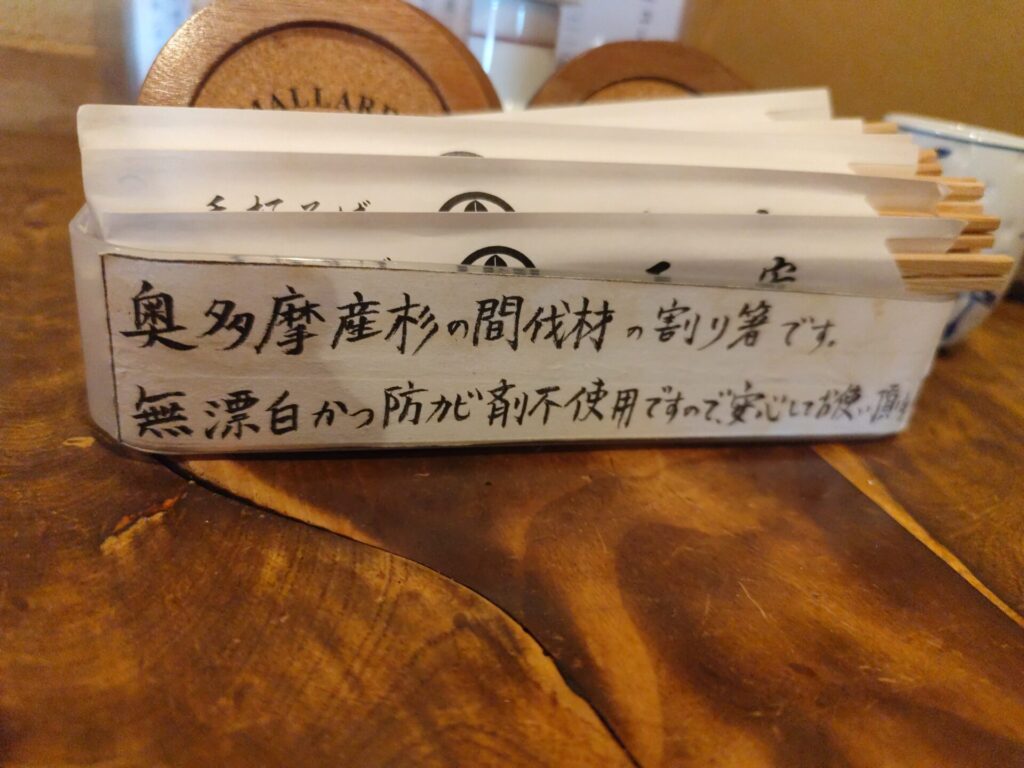 MALLARD
手打そば
奥多摩産杉の間伐材の割り箸です。
無漂白かつ防カビ剤不使用ですので、安心してお使い頂け